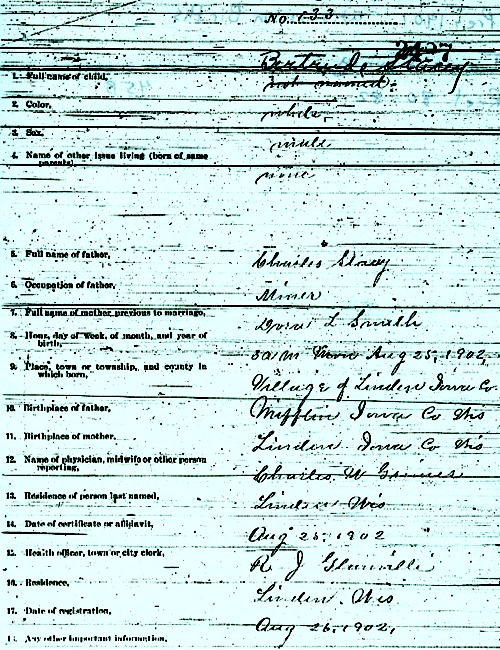 No. 133
Gertrude Stacey
1. Full name of child, not named.
2. Color, white,
3. Sex, male
4. Name of other issue living (born of same
parents) none
5. Full name of father, Charles Stacy
6. Occupation of father, Miner
7. Full name of mother previous to marriage, L Smith
8. Hour, day of week, of month, and year of
birth, Aug 25, 1902,
9. Place, town or township, and county in
which born, Village of Linden Iowa Co.
10. Birthplace of father, Mifflin Iowa Co Wis
11. Birthplace of mother, Linden Iowa Co Wis
12. Name of physician, midwife or other person
reporting, Charles W
13. Residence of person last named, Linden Wis
14. Date of certificate or affidavit, Aug 25, 1902
15. Health officer, town or city clerk, R J
16. Residence, Linden. Wis
17. Date of registration, Aug 26, 1902,
18. Any other important information,